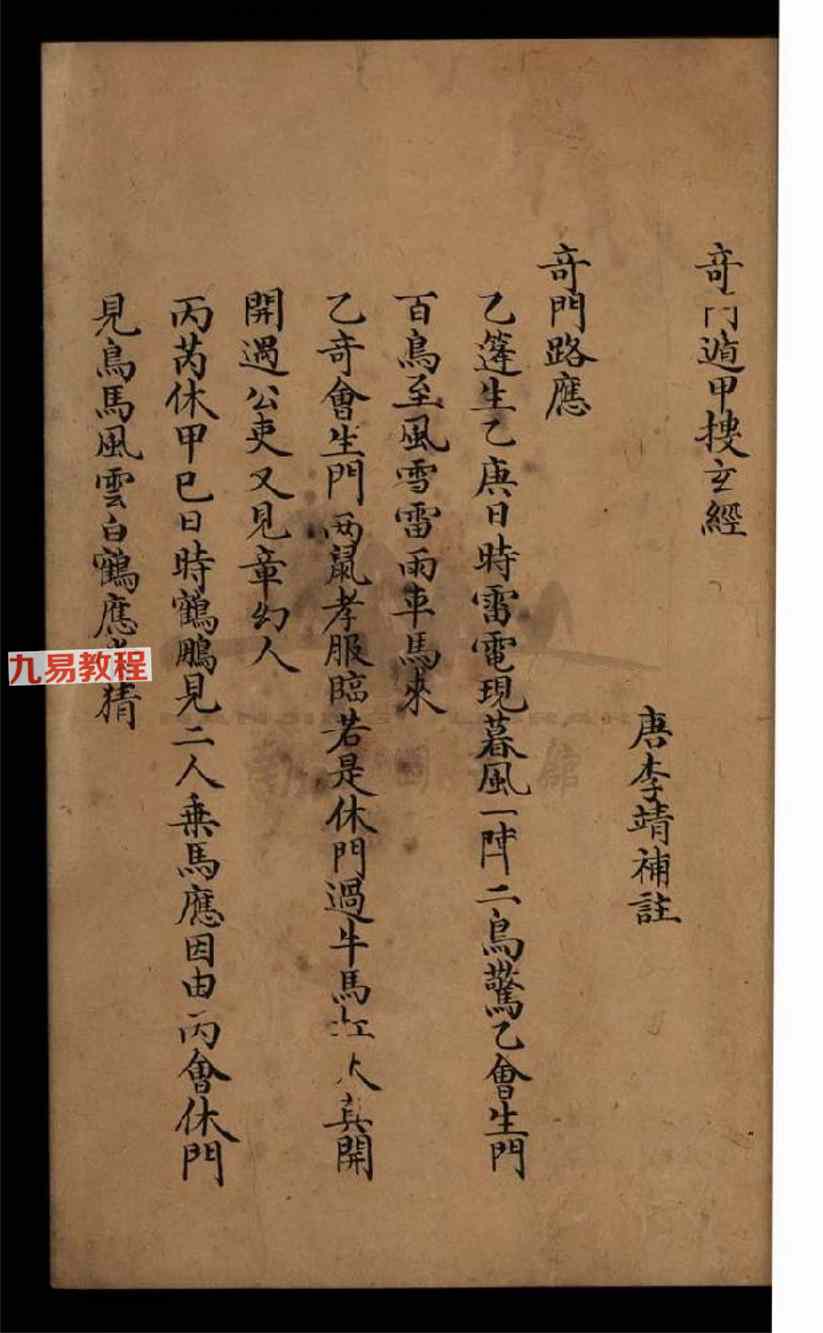 奇門遁甲捜玄經
唐李靖補註
奇門路應
乙蓬生乙庚日時雷電現暮風一陣二鳥驚乙會生門
百鳥至風雪雷雨車馬來
乙奇會生門兩鼠孝服臨若是休門過牛馬扛人真開
開遇公吏又見章幻人
丙芮休甲巳日時鶴鵬見二人乗馬應因由丙會休門
見鳥馬風雲白鶴應猜
九易教程